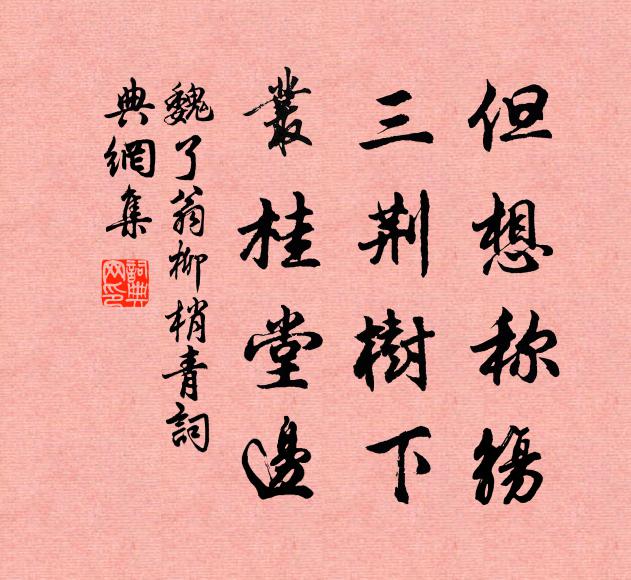 但想称觞
三荆樹下
叢桂堂邊
魏了翁柳梢青詞
典網集
詞典網印